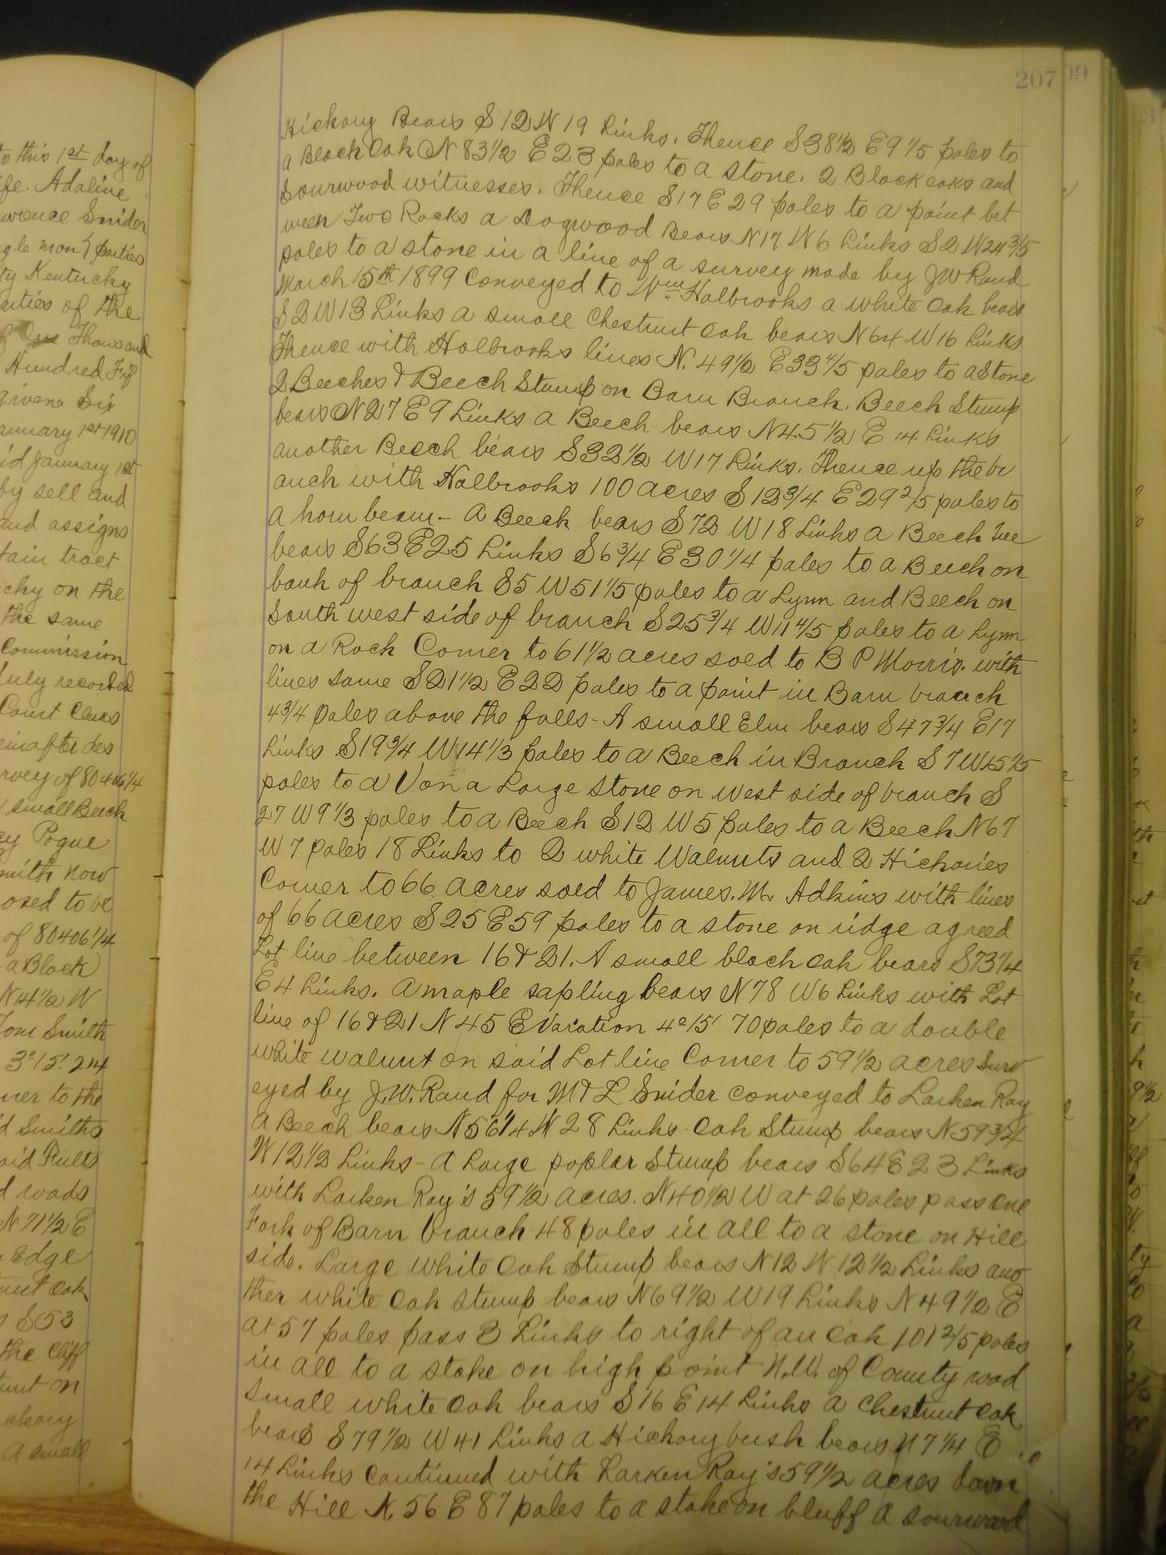 to this 1st day of
ife. Adaline
wrence Snider
gle man} parties
ty Kentucky
arties of the
Thousand
Hundred
given Six
anuary 1st 1910
id January 1st
by sell and
and assigns
tain tract
cky on the
the same
Commission
uly recorded
Court Clerks
einafter des
rvey of 80406 1/4
small Beech
ey Pogue
mith now
osed to be
of 80406 1/4
a Black
N 41/2 W
Tom Smith
3° 15' 24
ner to the
d Smiths
aid Fults
d roads
N 71 1/2 E
Edge
nut oak
S 53
the cliff
nut on
ickory
A small
207
Hickory Bears S 12 W 19 Links. Thence S 38 1/2 E 9 1/5 poles to
a Black Oak N 83 1/2 E 23 poles to a stone. 2 Black oaks and
Sourwood witnesses. Thence S 17 E 29 poles to a point bet
ween Two Rocks a Dogwood Bears N 17 W 6 Links S 2 W 24 3/5
poles to a stone in a line of a survey made by J W Rand
March 15th 1899 Conveyed to Wm Halbrooks a white Oak bears
S 2 W 13 Links a small Chestnut Oak bears N 64 W 16 Links
Thence with Halbrooks lines N. 49 1/2 E 33 4/5 poles to a Stone
2 Beeches & Beech Stump on Barn Branch. Beech Stump
bears N 27 E 9 Links a Beech bears N 45 1/2 E 14 Links
another Beech bears S 32 1/2 W 17 Links. Thence up the br
anch with Halbrooks 100 acres S 12 3/4 E 29 2/5 poles to
a horn beam - A Beech bears S 72 W 18 Links a Beech Tree
bears S 63 E 25 Links S 6 3/4 E 30 1/4 poles to a Beech on
bank of branch S 5 W 51 1/5 poles to a Lynn and Beech on
South west side of branch S 25 3/4 W 11 4/5 poles to a Lynn
on a Rock Corner to 61 1/2 acres soed to B P Morris. with
lines same S 21 1/2 E 22 poles to a point in Barn branch
4 3/4 poles above the falls - A small Elm bears S 47 3/4 E 17
Links S 19 3/4 W 14 1/3 poles to a Beech in Branch S 7 W
poles to a V on a Large Stone on west side of branch S
27 W 9 1/3 poles to a Beech S 12 W 5 poles to a Beech N 67
W 7 poles 18 Links to 2 white Walnuts and 2 Hickories
Corner to 66 acres soed to James. M. Adkins with lines
of 66 acres S 25 E 59 poles to a stone on ridge agreed
Lot line between 16 & 21. A small black Oak bears S 73 1/4
E 4 Links. A maple sapling bears N 78 W 6 Links with Lot
line of 16 & 21 N 45 E Variation 4° 15' 70 poles to a double
white walnut on said Lot line Corner to 59 1/2 acres surv
eyed by J.W. Rand for M & L Snider conveyed to Larken Ray
a Beech bears N 56 1/4 W 28 Links - Oak Stump bears N 59 3/4
W 12 1/2 Links - A Large poplar Stump bears S 64 E 23 Links
with Larken Ray's 59 1/2 acres. N 40 1/2 W at 26 poles pass one
Fork of Barn branch 48 poles in all to a stone on Hill
side. Large white Oak Stump bears N 12 W 12 1/2 Links ano
ther white Oak stump bears N 69 1/2 W 19 Links N 49 1/2 E
at 57 poles pass 3 Links to right of an Oak 101 2/5 poles
in all to a stake on high point N.W. of County road
Small white Oak bears S 16 E 14 Links a Chestnut Oak
bears S 79 1/2 W 41 Links a Hickory bush bears N 7 1/4 E
14 Links continued with Larken Ray's 59 1/2 acres down
the Hill N. 56 E 87 poles to a stake on bluff A sourwood